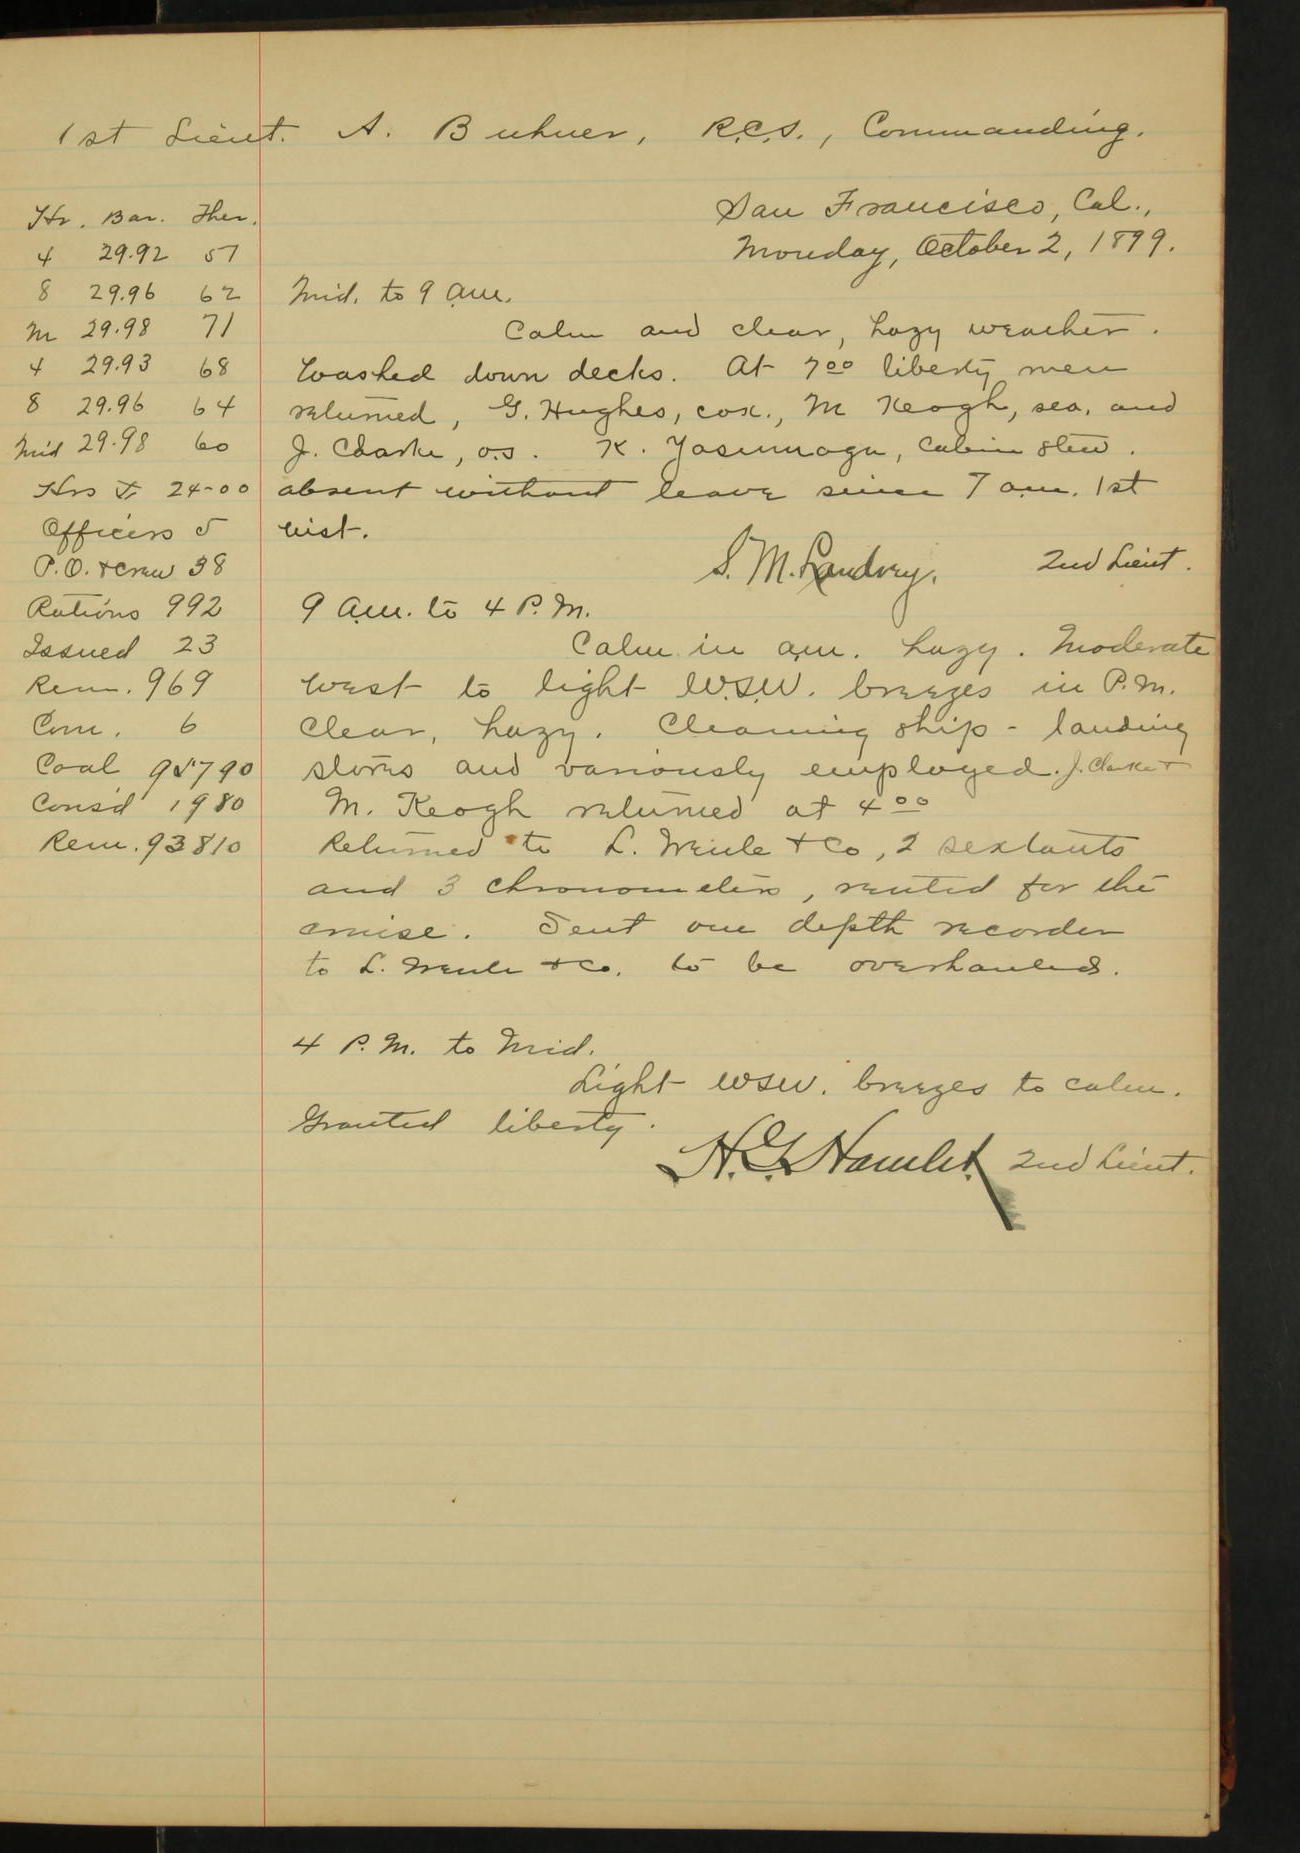 1st Lieut. A. Buhner, R.C.S., Commanding.
San Francisco, Cal.,
Monday, October 2, 1899.
Hr. Bar. Ther.
4 29.92 57
8 29.96 62
M 29.98 71
4 29.93 68
8 29.96 64
Mid 29.98 60
Hrs 24-00
Officers 5
P.O. & Crew 38
Rations 992
Issued 23
Rem. 969
Com. 6
Coal 95790
Cons'd 1980
Rem. 93810
Mid. to 9 a.m.
Calm and clear, hazy weather.
Washed down decks. At 7 00 liberty men
returned, G. Hughes, cox., M Keogh, sea. and
J. Clarke, o.s. K. Yasumaga, Cabin Stew.
absent without leave since 7 a.m. 1st
inst.
S. M. Landrey, 2nd Lieut.
9 a.m. to 4 P.M.
Calm in a.m. hazy. Moderate
West to light W.S.W. breezes in P.M.
Clear, hazy. Cleaning ship - landing
stores and variously employed. J. Clarke +
M. Keogh returned at 4 00
Returned to L. Weule + Co, 2 sextants
and 3 chronometers, rented for the
cruise. Sent one depth recorder
to L. Weule + Co. to be overhauled.
4 P.M. to Mid.
Light WSW. breezes to calm.
Granted liberty.
H.G. Hamlet 2nd Lieut.